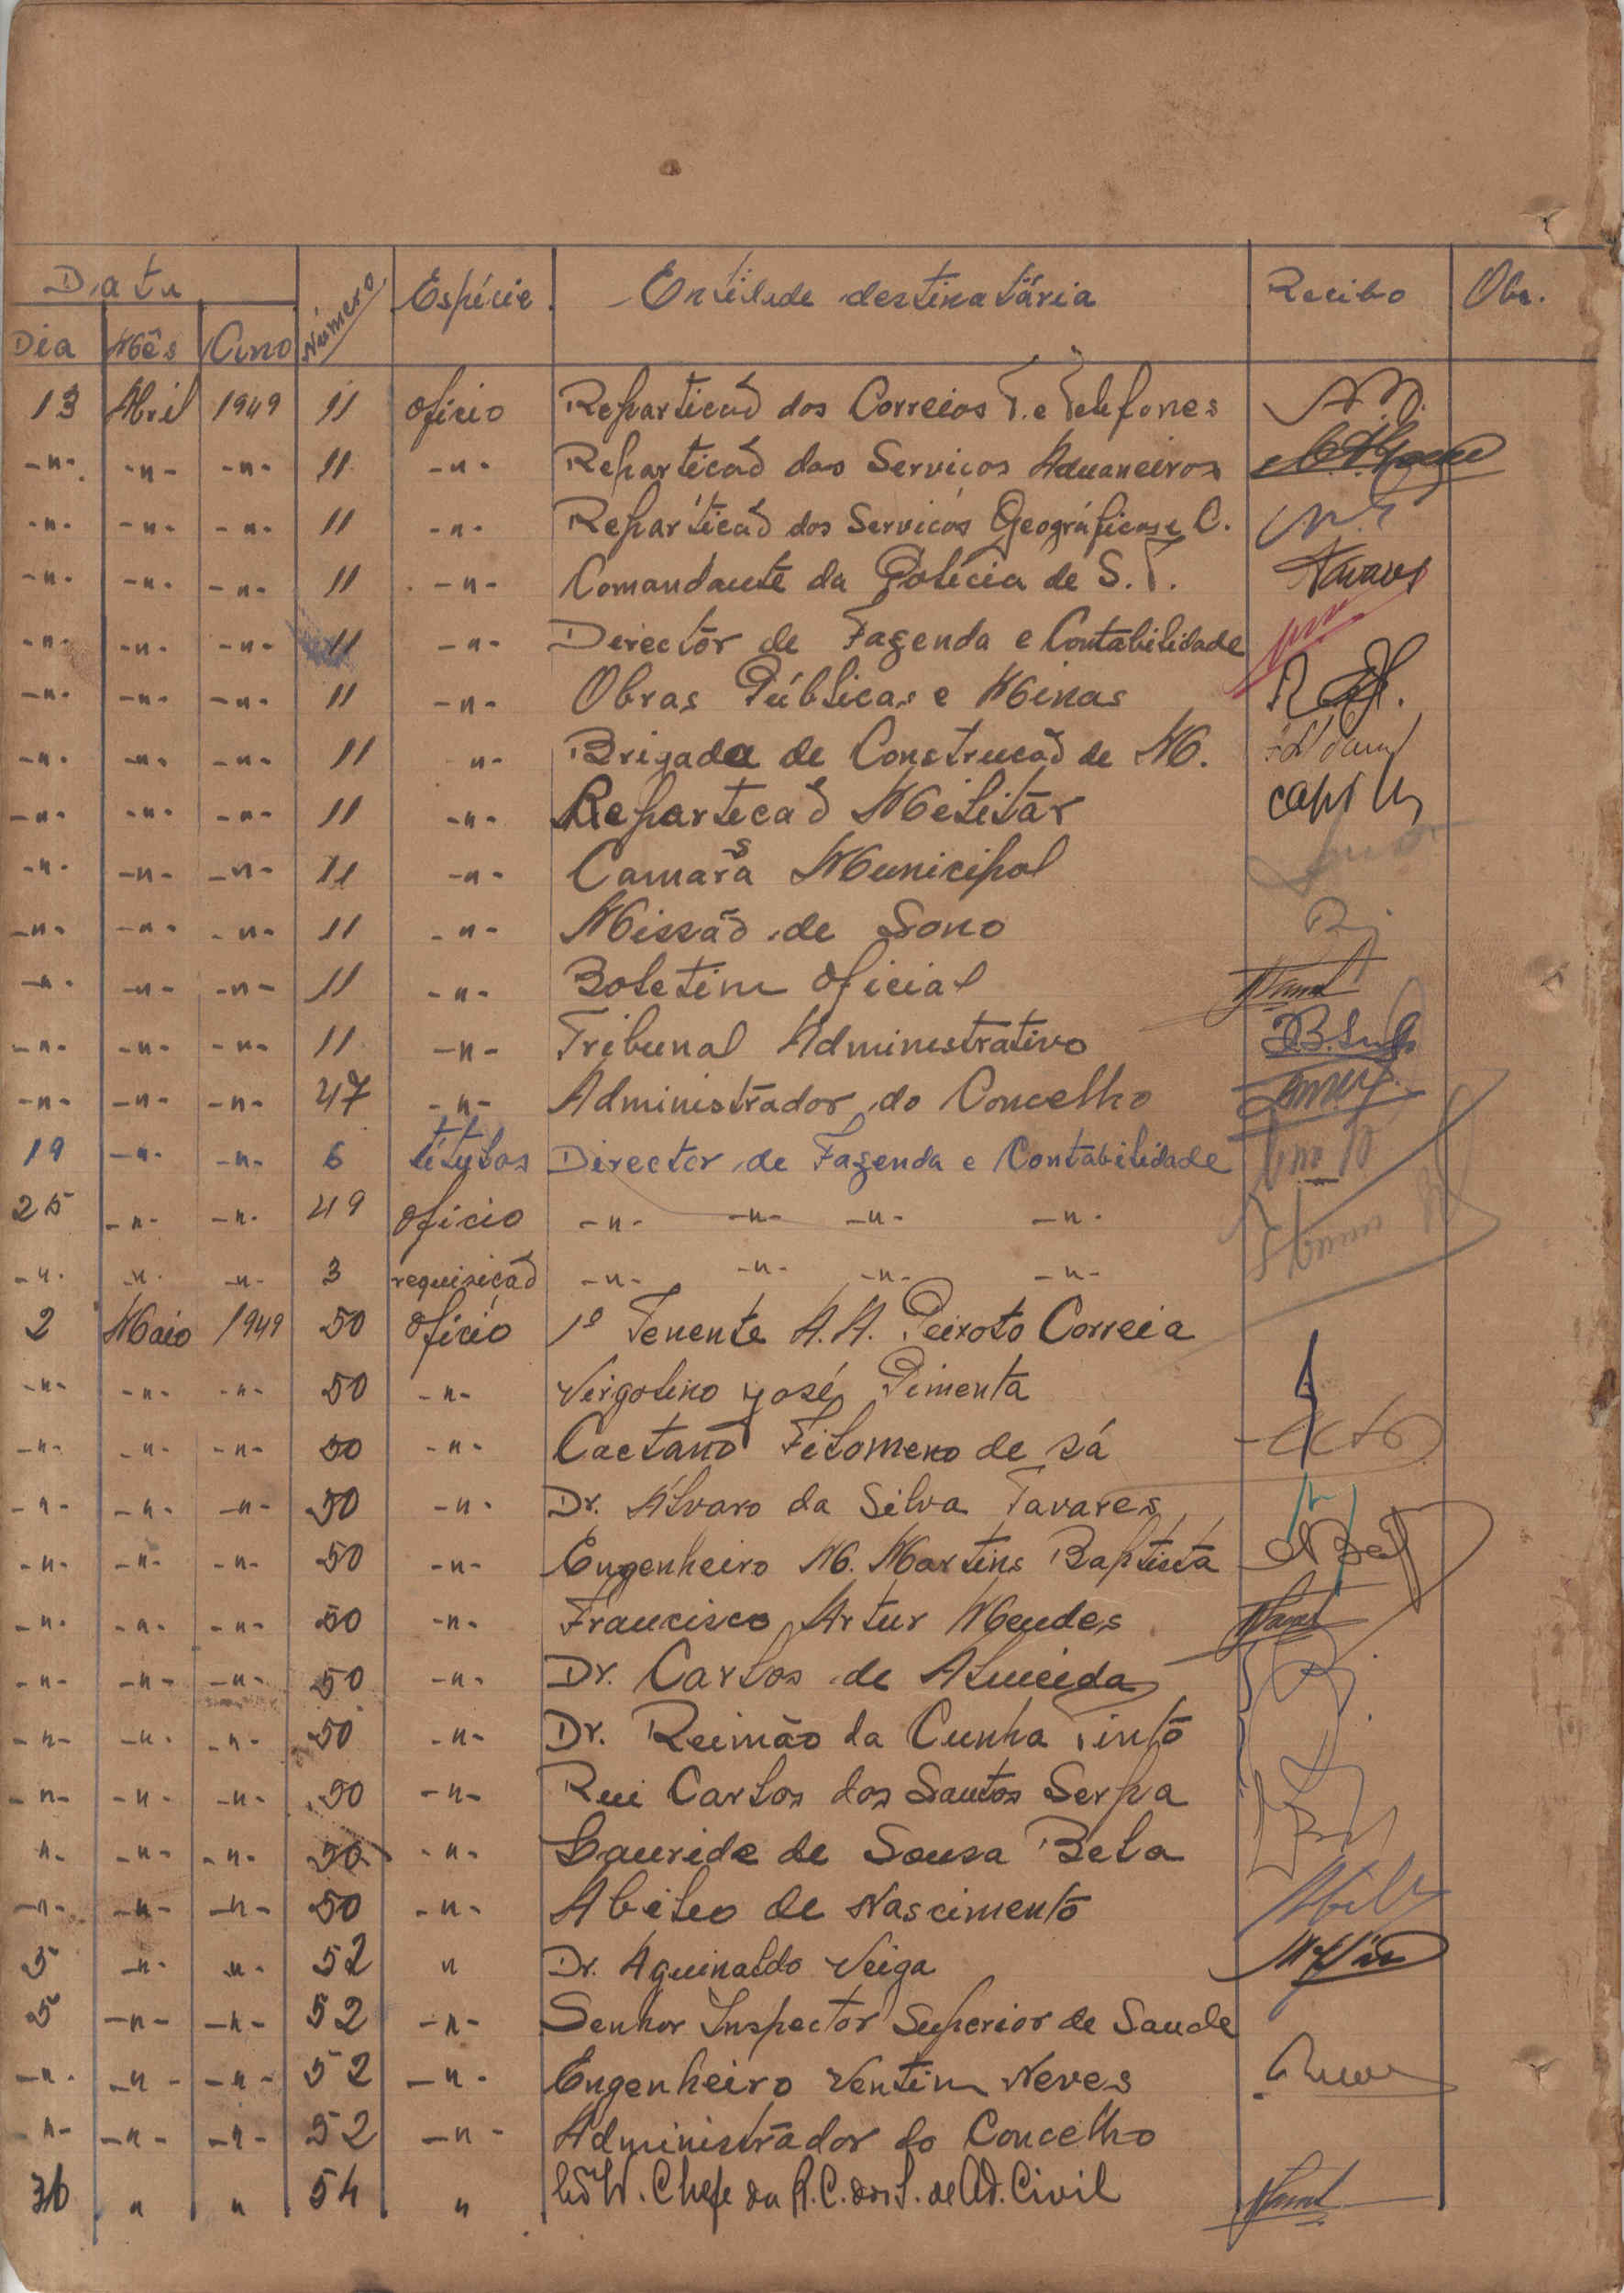 Data Número Espécie Entidade destinatária Recibo Obs.
Dia Mês Ano
13 Abril 1949 11 Ofício Reparticão dos Correios T. e Telefones
-"- -"- -"- 11 -"- Reparticão dos Servicos Aduaneiros
-"- -"- -"- 11 -"- Reparticão dos Servicos Geográficos e C.
-"- -"- -"- 11 -"- Comandante da Polícia de S.T. Tavares
-"- -"- -"- 11 -"- Director de Fazenda e Contabilidade
-"- -"- -"- 11 -"- Obras Públicas e Minas
-"- -"- -"- 11 "- Brigada de Construcão de M.
-"- -"- -"- 11 -"- Reparticão Militar
-"- -"- -"- 11 -"- Camara Municipal
-"- -"- -"- 11 -"- Missão de Sono
-"- -"- -"- 11 -"- Boletim Oficial
-"- -"- -"- 11 -"- Tribunal Administrativo
-"- -"- -"- 47 -"- Administrador do Concelho
19 -"- -"- 6 títulos Director de Fazenda e Contabilidade
25 -"- -"- 49 Ofício -"- -"- -"- -"-
-"- -"- -"- 3 requisicão -"- -"- -"- -"-
2 Maio 1949 50 Ofício 1º Tenente A.A. Peixoto Correia
-"- -"- -"- 50 -"- Virgolino José Pimenta
-"- -"- -"- 50 -"- Caetano Filomeno de Sá
-"- -"- -"- 50 -"- Dr. Álvaro da Silva Tavares
-"- -"- -"- 50 -"- Engenheiro M. Martins Baptista
-"- -"- -"- 50 -"- Francisco Artur Mendes
-"- -"- -"- 50 -"- Dr. Carlos de Almeida
-"- -"- -"- 50 -"- Dr. Reimão da Cunha Pinto
-"- -"- -"- 50 -"- Rui Carlos dos Santos Serpa
"- -"- -"- 50 -"- de Sousa Bela
-"- -"- -"- 50 -"- Abílio de Nascimento
5 -"- -"- 52 " Dr. Aguinaldo Veiga
5 -"- -"- 52 -"- Senhor Inspector Superior de Saude
-"- -"- -"- 52 -"- Engenheiro Ventim Neves
-"- -"- -"- 52 -"- Administrador do Concelho
" " 54 " Chefe da R.C. dos S. de Ad. Civil